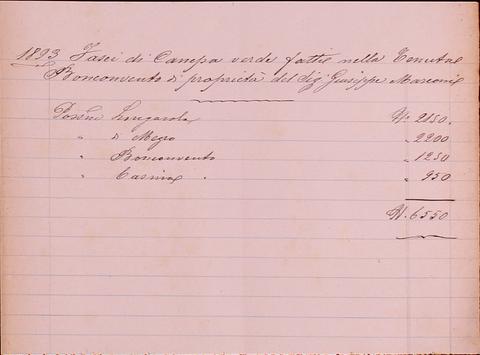 1893 Fasci di Canepa verde fatti nella Tenuta
Bonconvento di proprietà del Sig. Giuseppe Marconi
Possne Lungarola N. 2150.
" di Mezzo " 2200
" Bonconvento " 1250
" Casina " 950
N. 6550